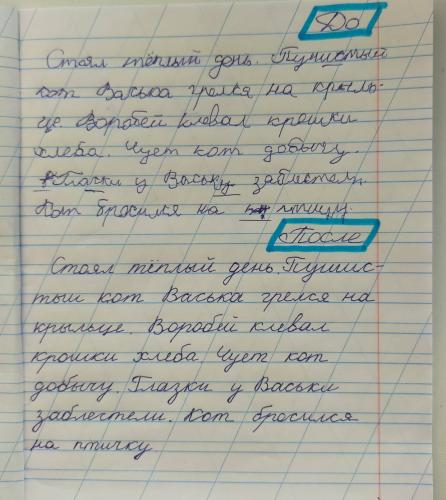 До
Стоял тёплый день. Пунистый
кот Васька грелся на крыль-
це. Воробей клевал крошки
хлеба. Чует кот добычу.
Глачки у Ваську забистели.
Кот бросился на птицу.
После
Стоял тёплый день. Пушис-
тый кот Васька грелся на
крыльце. Воробей клевал
крошки хлеба. Чует кот
добычу. Глазки у Васьки
заблестели. Кот бросился
на птичку.